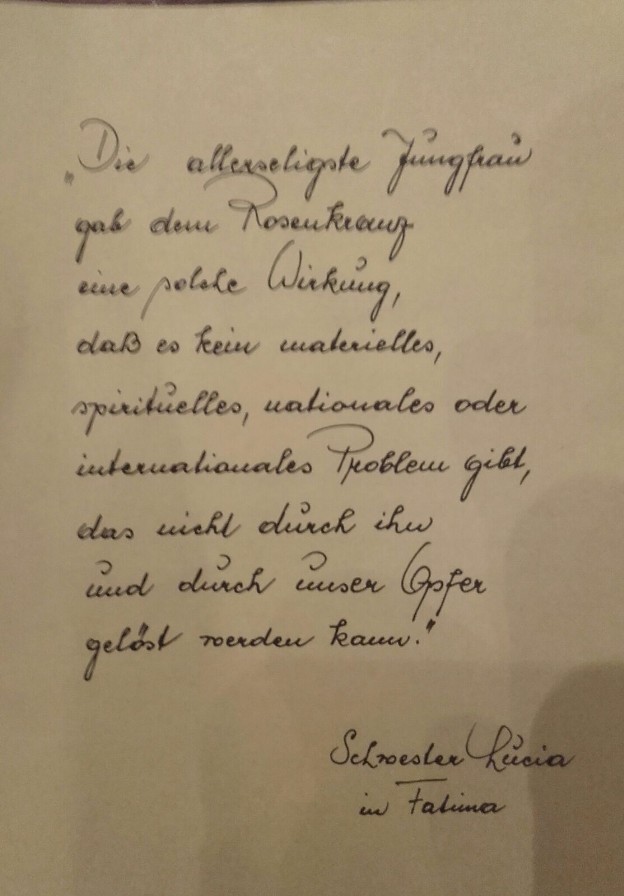 „Die allerseligste Jungfrau
gab dem Rosenkranz
eine solche Wirkung,
daß es kein materielles,
spirituelles, nationales oder
internationales Problem gibt,
das nicht durch ihn
und durch unser Opfer
gelöst werden kann."
Schwester Lucia
in Fatima